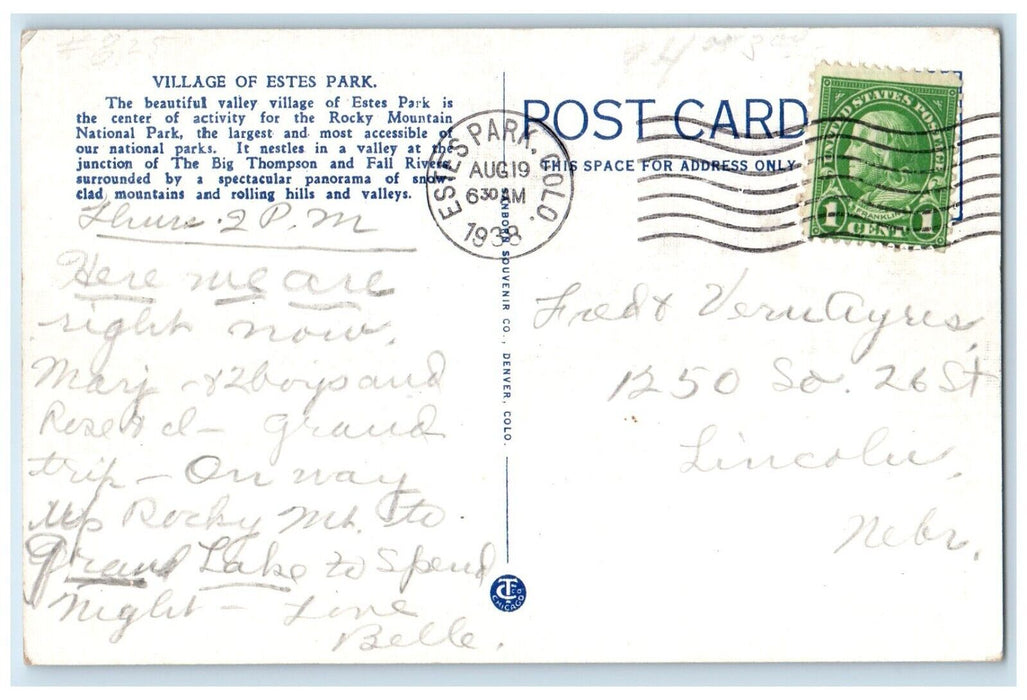 VILLAGE OF ESTES PARK.
The beautiful valley village of Estes Park is
the center of activity for the Rocky Mountain
National Park, the largest and most accessible of
our national parks. It nestles in a valley at the
junction of The Big Thompson and Fall Rivers
surrounded by a spectacular panorama of snow-
clad mountains and rolling hills and valleys.
Thurs. 2 P.M
Here we are
right now.
Marj - & 2 boys and
Rose & I - grand
trip - On way
up Rocky Mt. to
Grand Lake to spend
night - Love
Belle.
SANBORN SOUVENIR CO., DENVER, COLO.
CT CO
CHICAGO
POST CARD
THIS SPACE FOR ADDRESS ONLY
ESTES PARK, COLO.
AUG 19
6 30 AM
1938
UNITED STATES POSTAGE
FRANKLIN
1 CENT 1
Fred & Vern Ayres,
1250 So. 26 St
Lincoln,
Nebr.